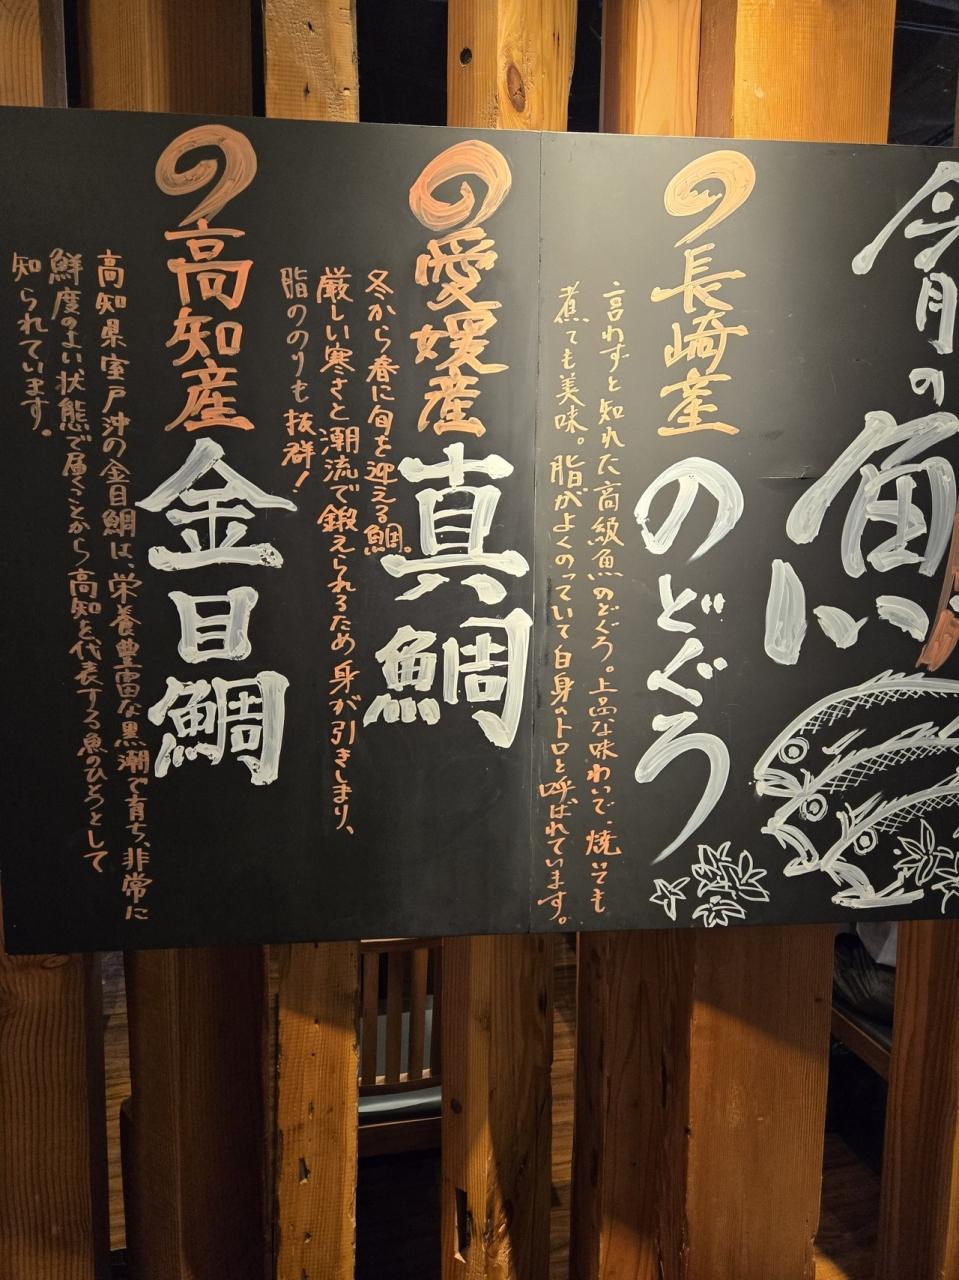 今月の
魚
い
長崎産
のどぐろ
言わずと知れた高級魚のどぐろ。上品な味わいで、焼いても
煮ても美味。脂がよくのっていて白身のトロと呼ばれています。
愛媛産
真鯛
冬から春に旬を迎える鯛。
厳しい寒さと潮流で鍛えられるため身が引きしまり、
脂ののりも抜群!
高知産
金目鯛
高知県室戸沖の金目鯛は、栄養豊富な黒潮で育ち、非常に
鮮度のよい状態で届くことから高知を代表する魚のひとつとして
知られています。